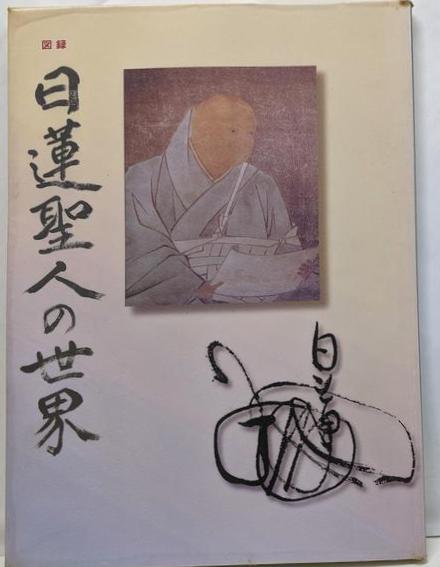 図録
日蓮聖人の世界
日蓮